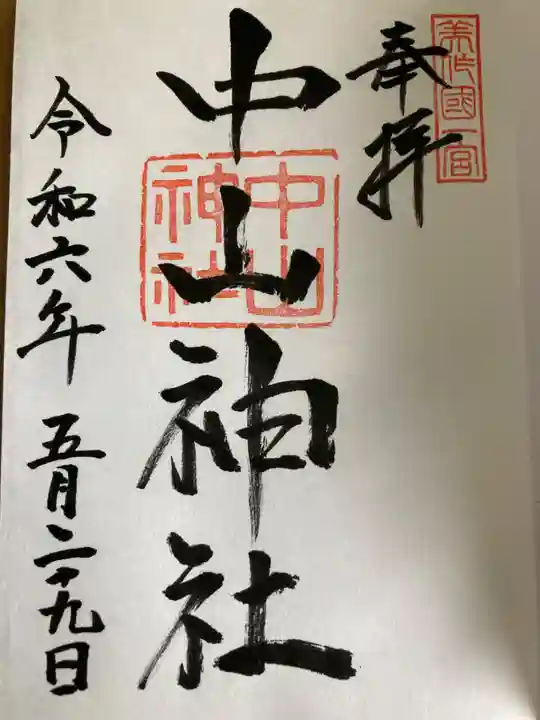 美作國一宮
奉拝
中山神社
中山神社
令和六年 五月二十九日